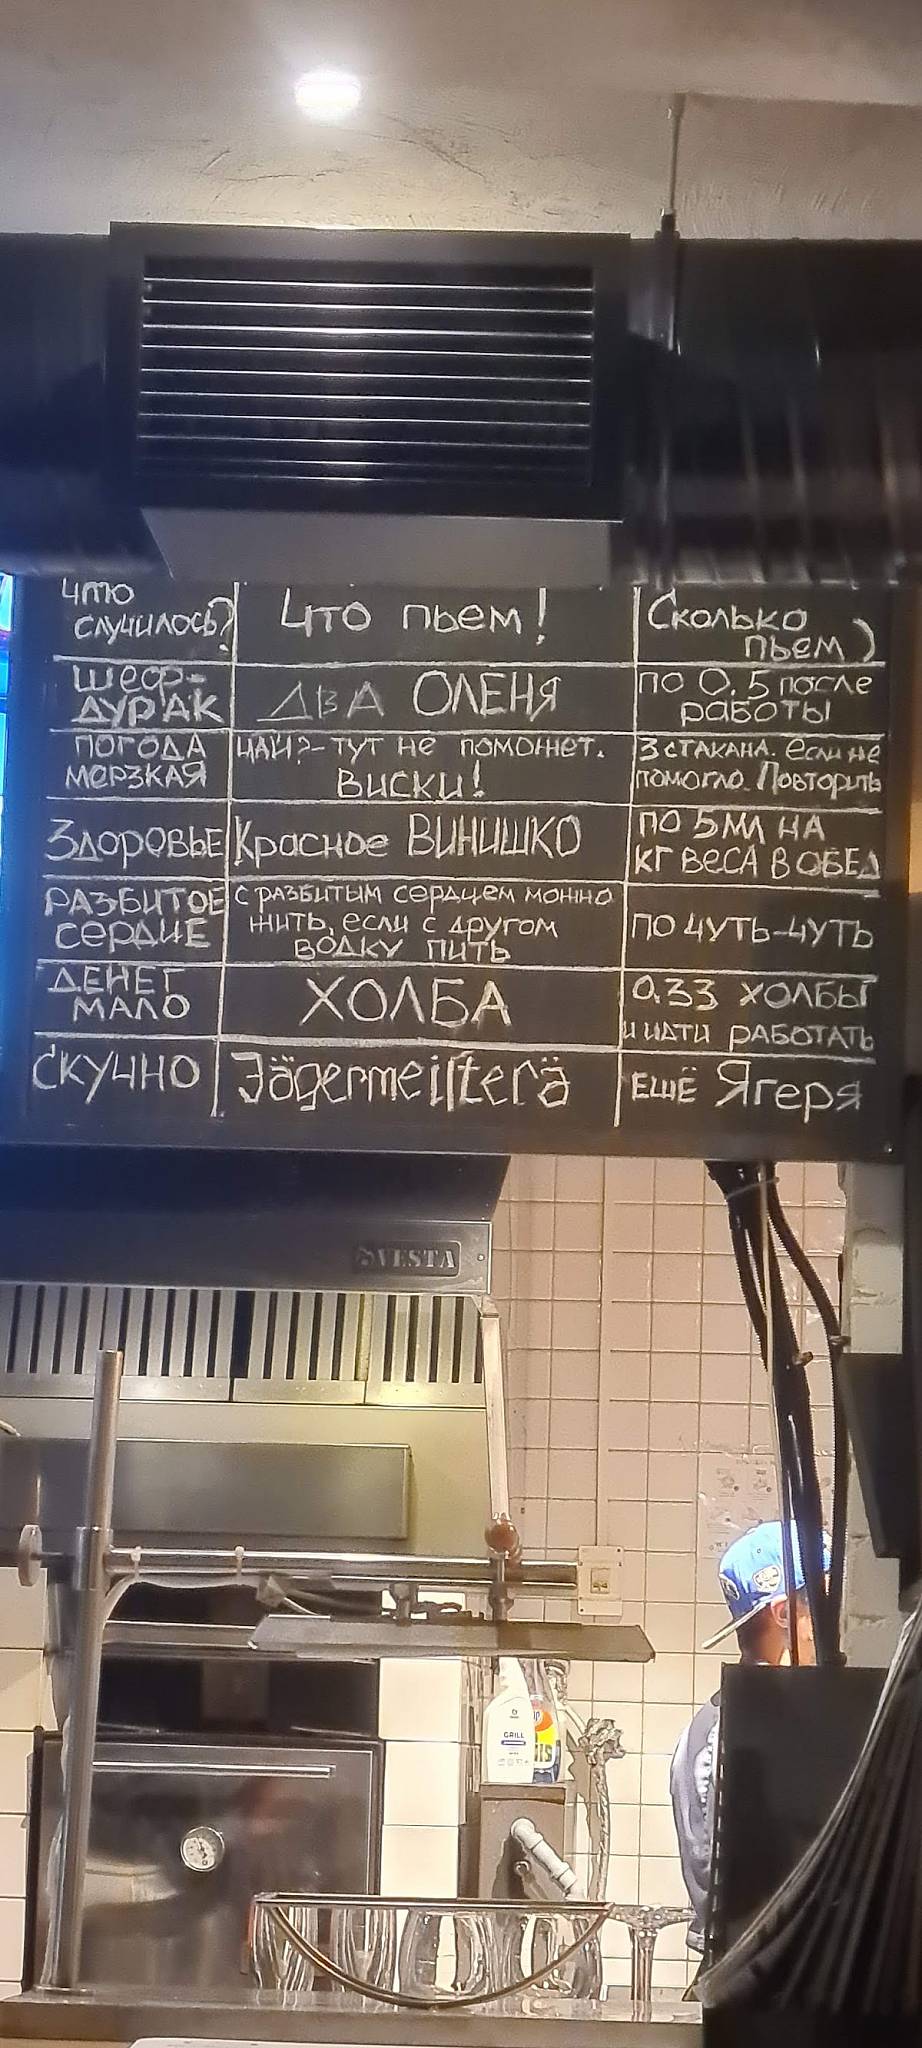 Что случилось? Что пьем! Сколько пьем)
Шеф-дурак ДВА ОЛЕНЯ по 0.5 после работы
погода мерзкая чай?-тут не поможет. виски! 3 стакана. Если не помогло. Повторить
Здоровье Красное ВИНИШКО по 5 мл на кг веса в обед
РАЗБИТОЕ сердце с разбитым сердцем можно жить, если с другом водку пить по чуть-чуть
Денег мало ХОЛБА 0.33 холбы и идти работать
Скучно Jägermeisterä ещё Ягеря
VESTA
GRILL